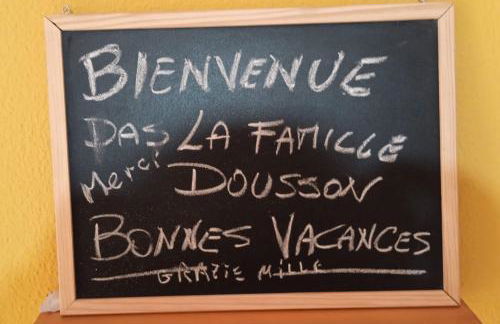 BIENVENUE
DAS LA FAMILLE
Merci DOUSSON
BONNES VACANCES
GRAZIE MILLE